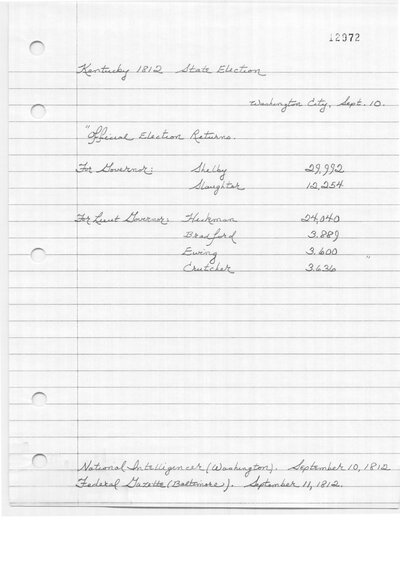 12972
Kentucky 1812 State Election
Washington City, Sept. 10.
"Official Election Returns.
For Governor: Shelby 29,992
Slaughter 12,254
For Lieut Governor: Hickman 24,040
Bradford 3,889
Ewing 3,600
Crutcher 3,636 "
National Intelligencer (Washington). September 10, 1812
Federal Gazette (Baltimore). September 11, 1812.